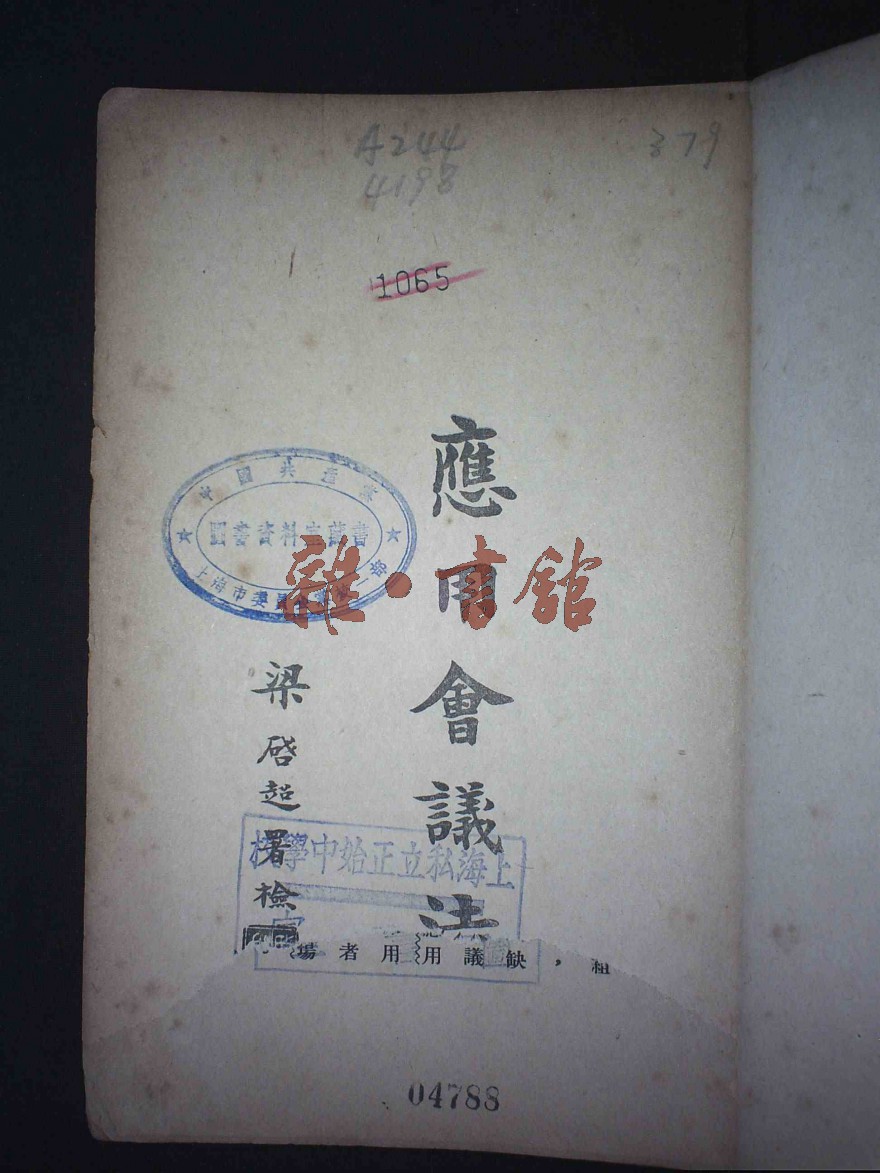 A244
4198
379
1065
應用會議法
中國共產黨
圖書資料室藏書
上海市委
雜·書館
梁啓超署檢
上海私立正始中學校
場者用用議缺，組
04788